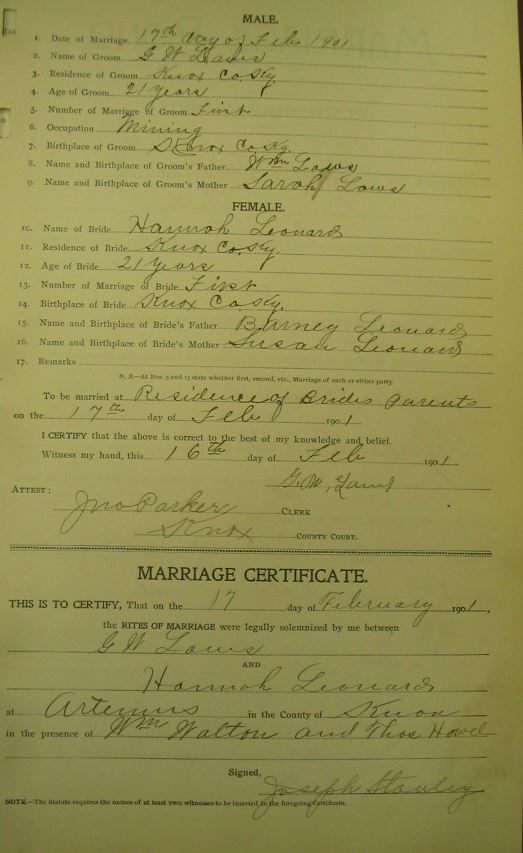 MALE.
1. Date of Marriage 17th day of Feb 1901
2. Name of Groom G W Laws
3. Residence of Groom Knox Co. Ky.
4. Age of Groom 21 years
5. Number of Marriage of Groom First
6. Occupation Mining
7. Birthplace of Groom Knox Co. Ky.
8. Name and Birthplace of Groom's Father Wm Laws
9. Name and Birthplace of Groom's Mother Sarah Laws
FEMALE.
10. Name of Bride Hannah Leonard
11. Residence of Bride Knox Co. Ky.
12. Age of Bride 21 years
13. Number of Marriage of Bride First
14. Birthplace of Bride Knox Co. Ky.
15. Name and Birthplace of Bride's Father Burney Leonard
16. Name and Birthplace of Bride's Mother Susan Leonard
17. Remarks
N. B.—At Nos. 5 and 13 state whether first, second, etc., Marriage of each or either party.
To be married at Residence of Brides parents
on the 17th day of Feb 1901
I CERTIFY that the above is correct to the best of my knowledge and belief.
Witness my hand, this 16th day of Feb 1901
G. W.
ATTEST:
Jno Parker CLERK
Knox COUNTY COURT.
MARRIAGE CERTIFICATE.
THIS IS TO CERTIFY, That on the 17 day of February 1901.
the RITES OF MARRIAGE were legally solemnized by me between
G W Laws
AND
Hannah Leonard
at Artemus in the County of Knox
in the presence of Wm Walton and Thos Howel
Signed, Joseph Stanley
NOTE.—The Statute requires the names of at least two witnesses to be inserted in the foregoing Certificate.